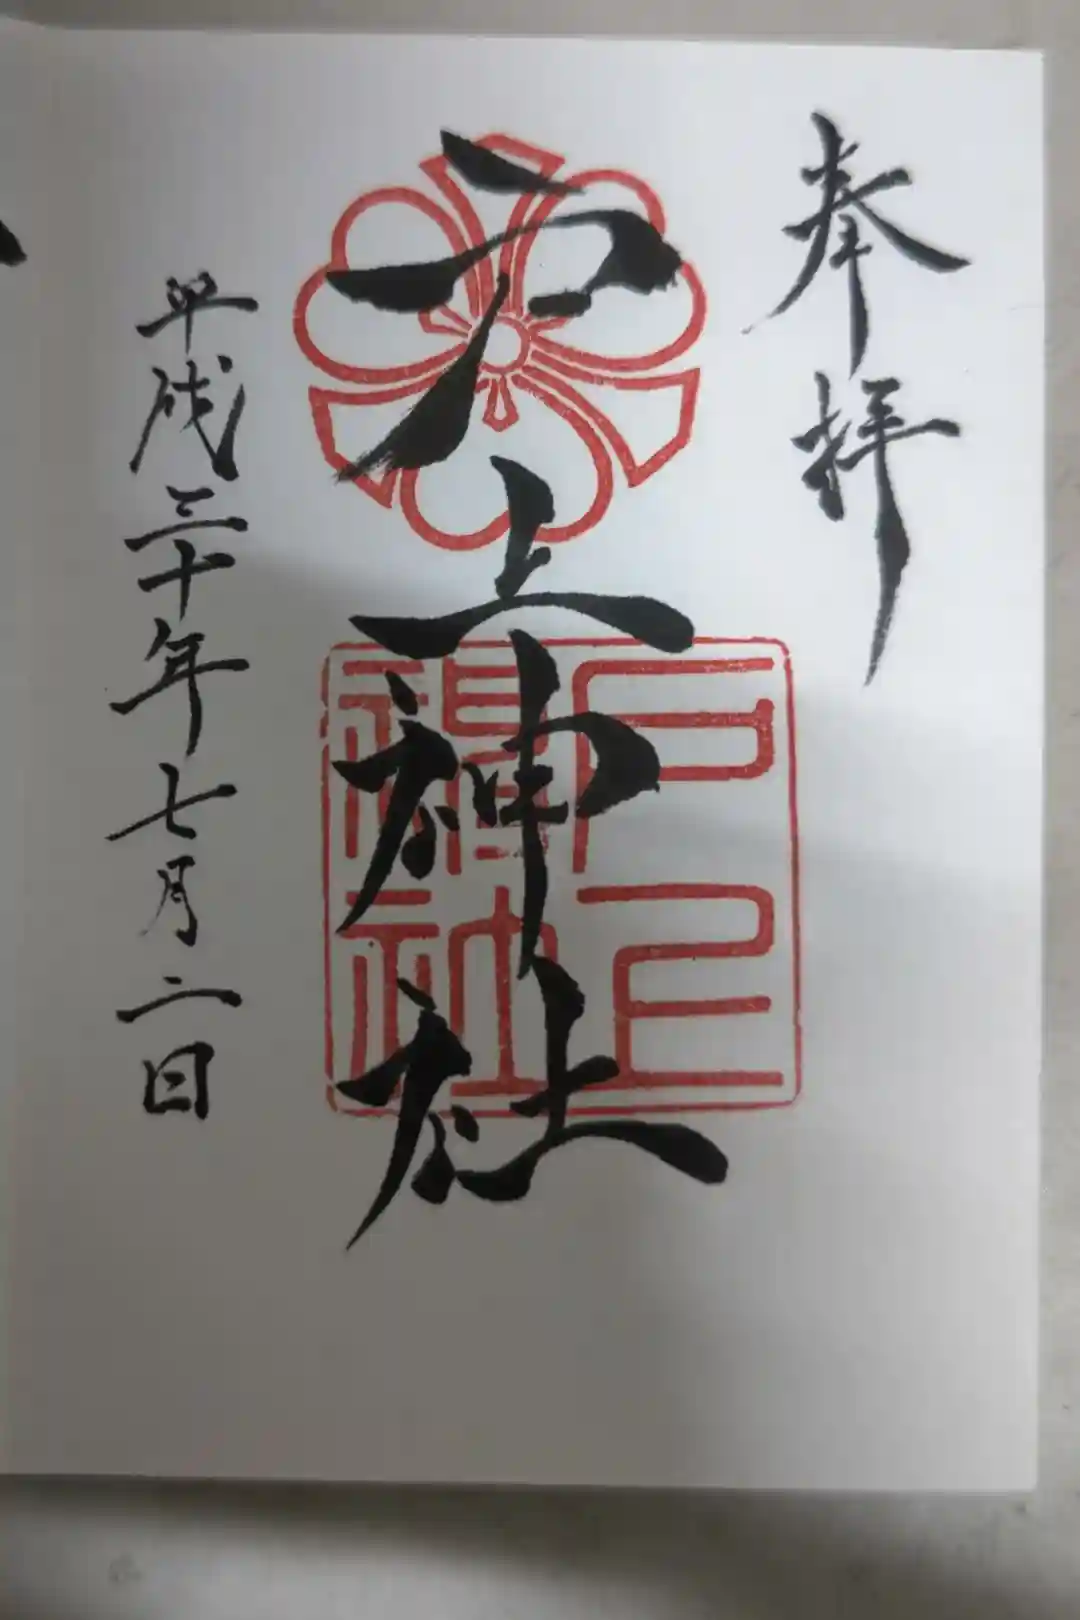 奉拝
戸上神社
平成三十年七月二日
戸上
神社